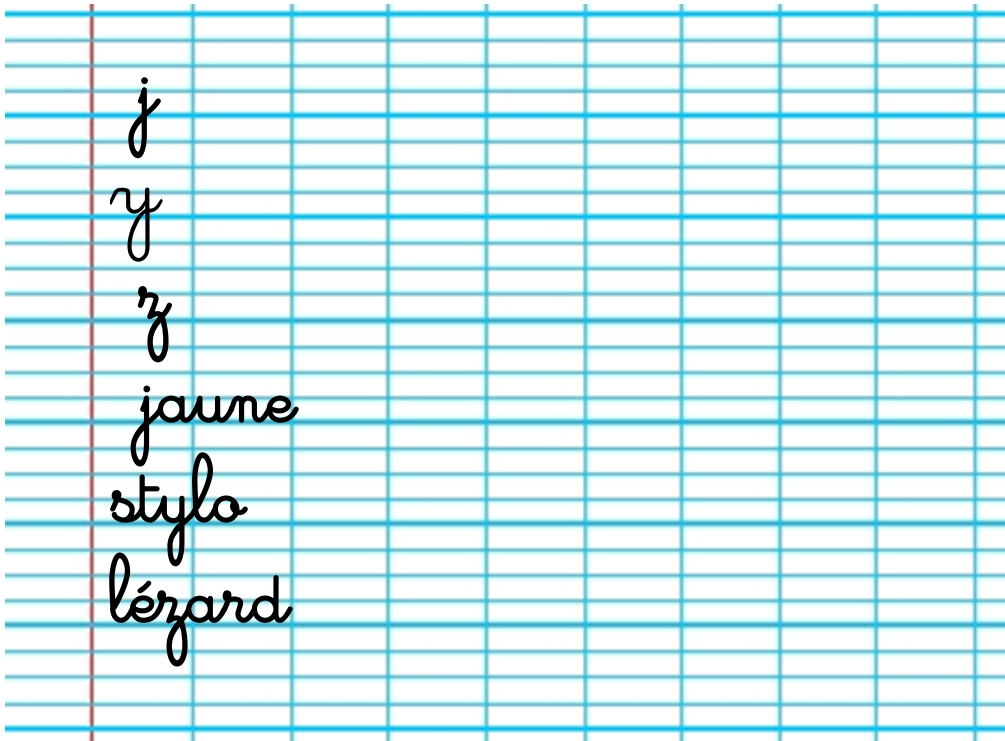 j
y
z
jaune
stylo
lézard